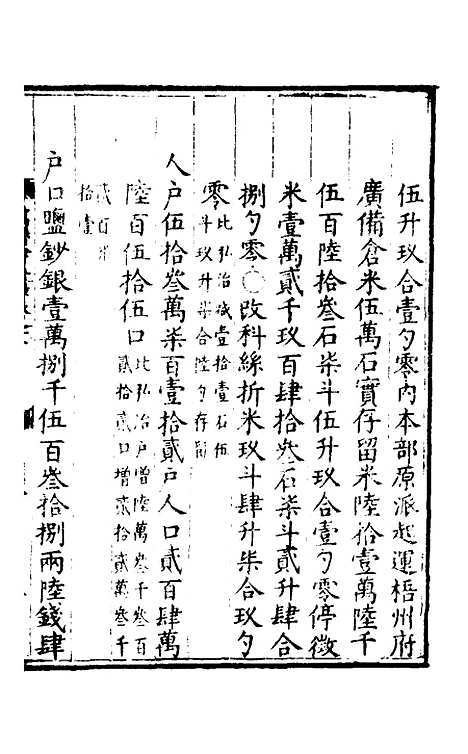 伍升玖合壹勺零內本部原派起運梧州府
廣備倉米伍萬石實存留米陸拾壹萬陸千
伍百陸拾叁石柒斗伍升玖合壹勺零停徵
米壹萬貳千玖百肆拾叁石柒斗貳升肆合
捌勺零○改科絲折米玖斗肆升柒合玖勺
零比弘治減壹拾壹石伍
斗玖升柒合陸勺存留
人戶伍拾叁萬柒百壹拾貳戶人口貳百肆萬
陸百伍拾伍口比弘治戶增陸萬叁千叁百
貳拾貳口增貳拾貳萬叁千
貳百
拾壹
戶口鹽鈔銀壹萬捌千伍百叁拾捌兩陸錢肆